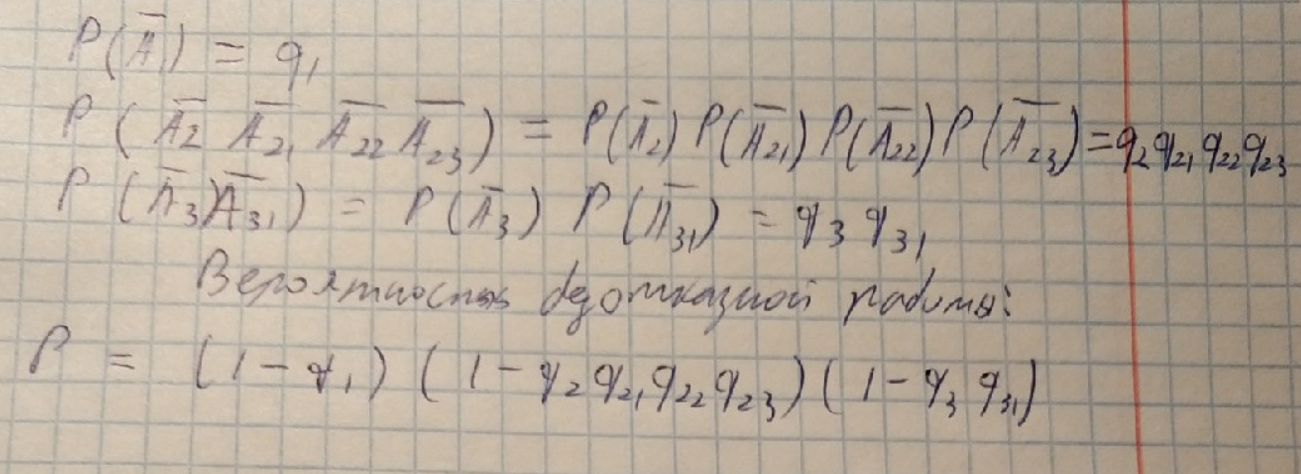 P(A̅₁) = q₁
P(A̅₂ A̅₂₁ A̅₂₂ A̅₂₃) = P(A̅₂) P(A̅₂₁) P(A̅₂₂) P(A̅₂₃) = q₂q₂₁q₂₂q₂₃
P(A̅₃A̅₃₁) = P(A̅₃) P(A̅₃₁) = q₃ q₃₁
Вероятность безотказной работы:
P = (1 - q₁) (1 - q₂q₂₁q₂₂q₂₃) (1 - q₃ q₃₁)